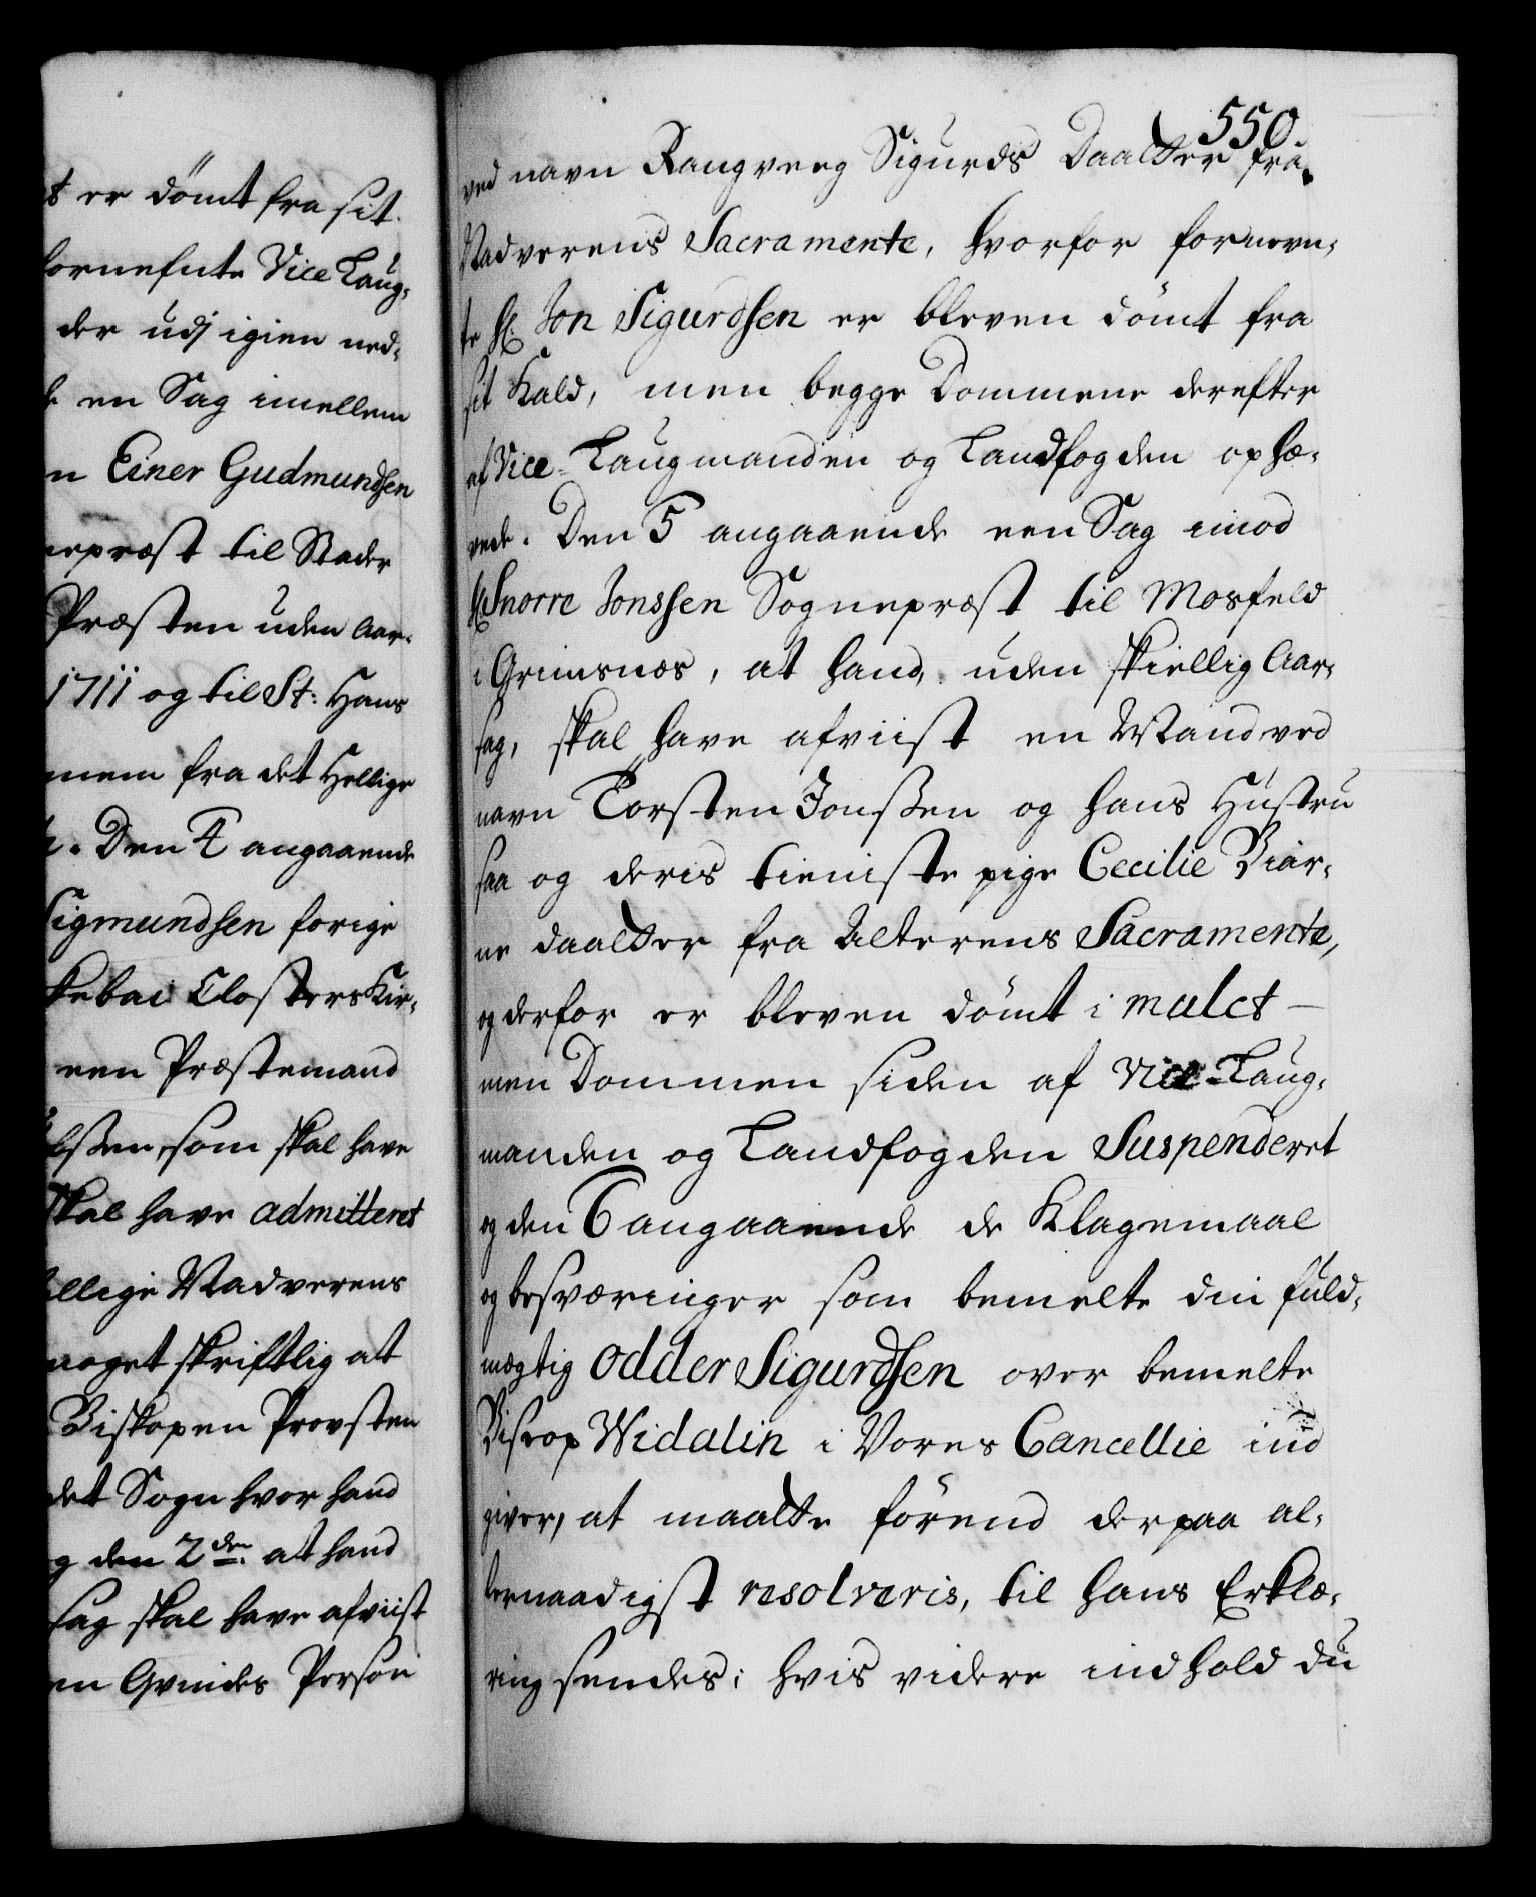 er dömt fra sit
fornefnte Vice Laug-
der udj igien ned-
en Sag imellem
Einer Gudmundsen
nepræst til Stader
Præsten uden Aar-
1711 og til St: Hans
fra det Hellige
Den 4 angaaende
Sigmundsen forige
Closters Kir-
een Præstemand
som skal have
skal have admitteret
Nadverens
noget skriftlig at
Biskopen Provsten
det Sogn hvor hand
den 2den at hand
sag skal have afviist
en Qvindes Person
550
ved navn Rangveeg Sigurds Daatter fra
Nadverens Sacramente, hvorfor fornevn-
te Hr. Jon Sigurdsen er bleven dömt fra
sit Kald, men begge Dommene derefter
af Vice-Laugmanden og Landfogden ophæ-
vede. Den 5 angaaende een Sag imod
Hr Snorre Jonssen Sognepræst til Mosfeld
i Grimsnæs, at hand, uden skiellig Aar-
sag, skal have afviist en Mand ved
navn Torsten Jonssen og hans Hustru
saa og deris tieniste pige Cecilie Biar-
ne daatter fra Alterens Sacramente,
og derfor er bleven dömt i mulct
men Dommen siden af Vice-Laug-
manden og Landfogden Suspenderet
og den 6 angaaende de Klagemaal
og besværinger som bemelte din fuld-
mægtig Odder Sigurdsen over bemelte
Biscop Widalin i Vores Cancellie ind
giver, at maatte förend derpaa al-
lernaadigst resolveris, til hans Erklæ-
ring sendes; hvis videre indhold du